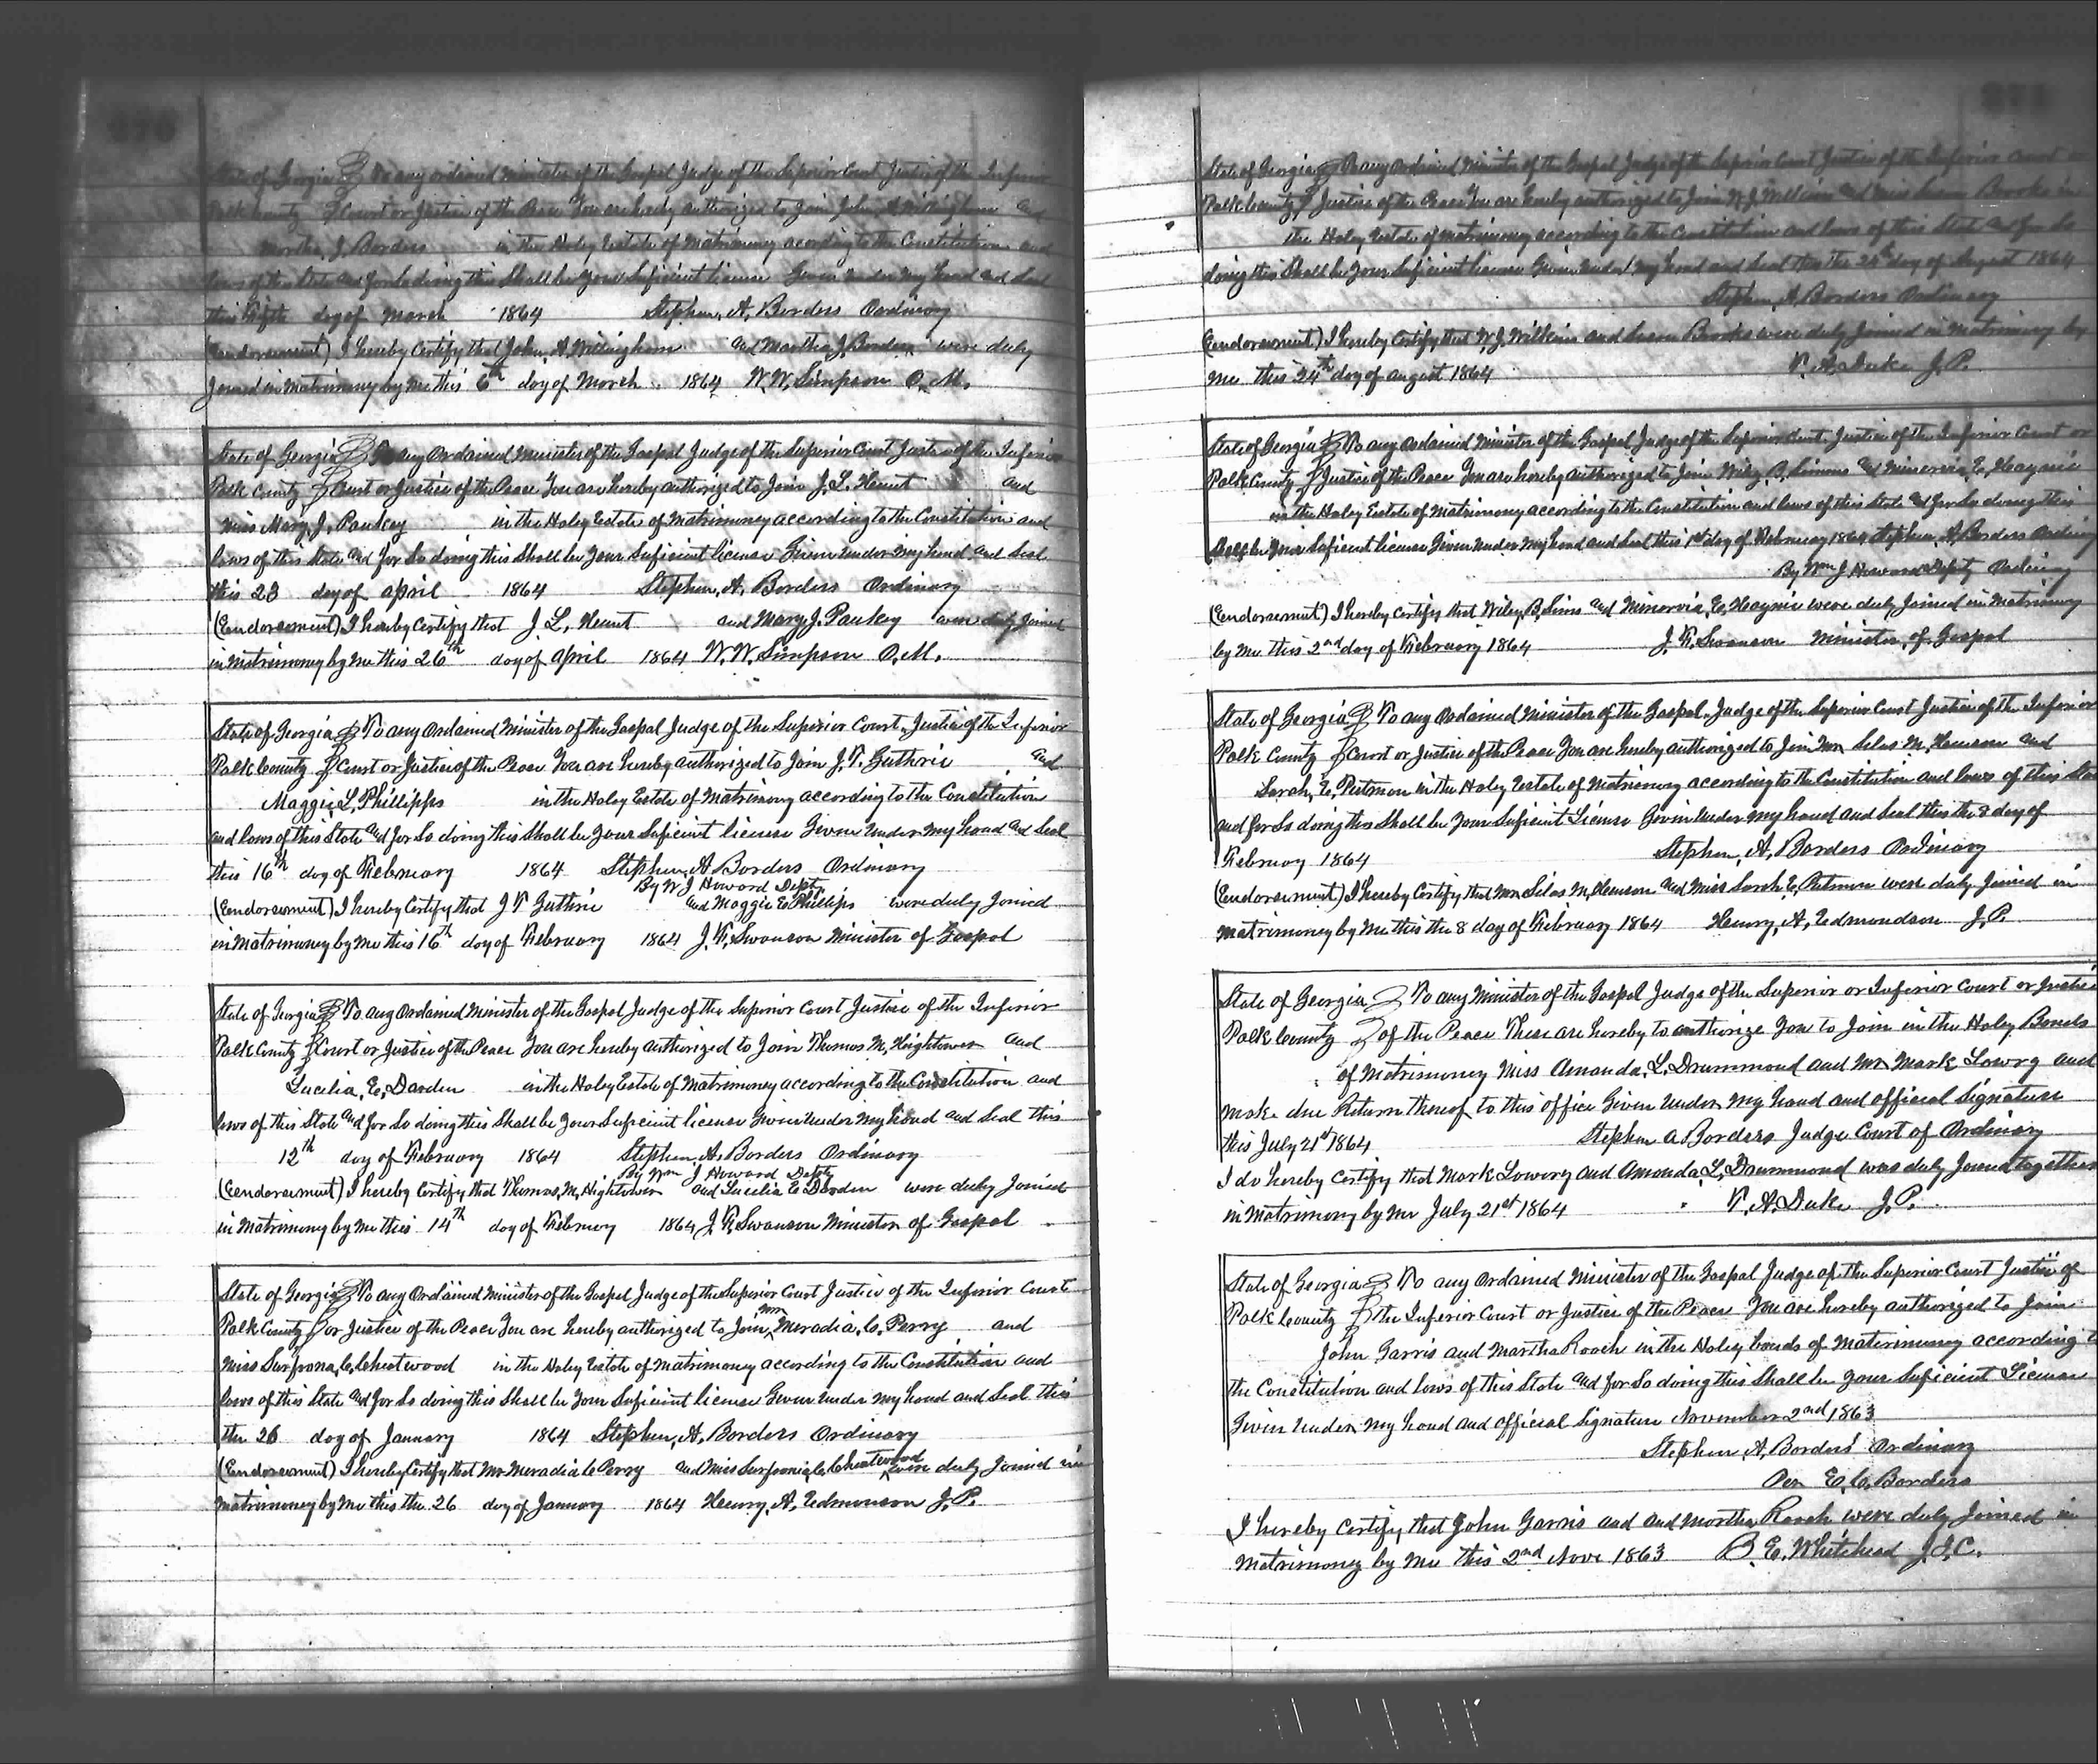 270
State of Georgia To any ordained Minister of the Gospel Judge of the Superior Court Justice of the Inferior
Polk County Court or Justice of the Peace You are hereby authorized to Join John A Willingham and
Martha J Borders in the Holey Estate of Matrimoney acording to the Constitution and
laws of this State and for So doing this Shall be your Suficient licence Given under my hand and Seal
this Fifth day of March 1864 Stephen, A. Borders Ordinary
(Endorsement) I hereby Certify that John, A Willingham and Martha J Borders were duly
Joined in Matrimoney by Me this 6th day of March 1864 W. W. Simpson O. M.
State of Georgia To any Ordained Minister of the Gospel Judge of the Superior Court Justice of the Inferior
Polk County Court or Justice of the Peace You are hereby authorized to Join J. L. Hunt and
Miss Mary, J. Paukey in the Holey Estate of Matrimoney according to the Constitution and
laws of this State and for So doing this Shall be your Suficient licence Given under my hand and Seal
this 23 day of April 1864 Stephen, A. Borders Ordinary
(Endorsement) I hereby Certify that J. L, Hunt and Mary J. Paukey were duly Joined
in Matrimoney by Me this 26th day of April 1864 W. W. Simpson O. M.
State of Georgia To any Ordained Minister of the Gospel Judge of the Superior Court, Justice of the Inferior
Polk County Court or Justice of the Peace You are hereby authorized to Join J. T. Guthrie and
Maggie L, Phillipps in the Holey Estate of Matrimony according to the Constitution
and laws of this State and for So doing this Shall be your Suficient licence Given under my hand and Seal
this 16th day of February 1864 Stephen, A Borders Ordinary
By W J Howard Depty
(Endorsement) I hereby Certify that J T Guthrie and Maggie E Phillips were duly Joined
in Matrimoney by Me this 16th day of February 1864 J. F. Swanson Minister of Gospel
State of Georgia To any Ordained Minister of the Gospel Judge of the Superior Court Justice of the Inferior
Polk County Court or Justice of the Peace You are hereby authorized to Join Thomas M, Hightower and
Lucilia, E, Darden in the Holey Estate of Matrimoney according to the Constitution and
laws of this State and for So doing this Shall be your Suficient licence Given under my hand and Seal this
12th day of February 1864 Stephen, A. Borders Ordinary
By Wm J Howard Depty
(Endorsement) I hereby Certify that Thomas, M, Hightower and Lucilia E Darden were duly Joined
in Matrimoney by me this 14th day of February 1864 J. F. Swanson Minister of Gospel
State of Georgia To any Ordained Minister of the Gospel Judge of the Superior Court Justice of the Inferior Court
Polk County or Justice of the Peace You are hereby authorized to Join, Mr Meradia, C, Perry and
Miss C, Cheatwood in the Holey Estate of Matrimoney according to the Constitution and
laws of this State and for So doing this Shall be Your Suficient licence Given under my hand and Seal this
the 26 day of January 1864 Stephen, A. Borders Ordinary
(Endorsement) I hereby Certify that Mr Meradia C Perry and Miss C, Cheatwood were duly Joined in
Matrimoney by Me this the 26 day of January 1864 Henry, A, Edmonson J. P.
271
State of Georgia To any Ordained Minister of the Gospel Judge of the Superior Court Justice of the Inferior Court or
Polk County Justice of the Peace You are hereby authorized to Join W. J. Wilkins and Miss Brooks in
the Holey Estate of Matrimoney according to the Constitution and laws of this State and for So
doing this Shall be Your Suficient licence Given under my hand and Seal this the 24th day of August 1864
Stephen, A Borders Ordinary
(Endorsement) I hereby Certify that W. J. Wilkins and Brooks were duly Joined in Matrimoney by
me this 24th day of August 1864 T. A. Duke J. P.
State of Georgia To any Ordained Minister of the Gospel Judge of the Superior Court Justice of the Inferior Court or
Polk County Justice of the Peace You are hereby authorized to Join Wiley, B, Simms and Minervia, E, Haynie
in the Holey Estate of Matrimoney according to the Constitution and laws of this State and for So doing this
Shall be Your Suficient licence Given under my hand and Seal this 1st day of February 1864 Stephen, A, Borders Ordinary
By Wm J Howard Depty Ordinary
(Endorsement) I hereby Certify that Wiley, B, Sims and Minervia, E, Haynie were duly Joined in Matrimony
by Me this 2nd day of February 1864 J. F. Swanson Minister, of Gospel
State of Georgia To any Ordained Minister of the Gospel, Judge of the Superior Court Justice of the Inferior
Polk County Court or Justice of the Peace You are hereby authorized to Join Mr Silas M, Henson and
Sarah, E, Pittman in the Holey Estate of Matrimoney according to the Constitution and laws of this State
and for So doing this Shall be Your Suficient Licence Given under my hand and Seal this the 8 day of
February 1864 Stephen, A, Borders Ordinary
(Endorsement) I hereby Certify that Mr Silas M, Henson and Miss Sarah E, Pitman were duly Joined in
Matrimoney by Me this the 8 day of February 1864 Henry, A, Edmondson J. P.
State of Georgia To any Minister of the Gospel Judge of the Superior or Inferior Court or Justice
Polk County of the Peace These are hereby to authorize You to Join in the Holey Bonds
of Matrimoney Miss Amanda, L, Drummond and Mr Mark Lowry and
make due Return thereof to this office Given under My hand and official Signature
this July 21st 1864 Stephen A. Borders Judge Court of Ordinary
I do hereby Certify that Mark Lowery and Amanda, L, Drummond was duly Joined together
in Matrimony by Me July 21st 1864 T. A. Duke J. P.
State of Georgia To any Ordained Minister of the Gospel Judge of the Superior Court Justice of
Polk County the Inferior Court or Justice of the Peace You are hereby authorized to Join
John Garris and Martha Roach in the Holey bonds of Matrimoney according to
the Constitution and laws of this State and for So doing this Shall be Your Suficient Licence
Given Under My hand and official Signature November 2nd 1863
Stephen, A, Borders Ordinary
Per E, C, Borders
I hereby Certify, that John Garris and and Martha, Roach were duly Joined in
Matrimoney by Me this 2nd Nove 1863 B. E, Whitehead J. I. C.